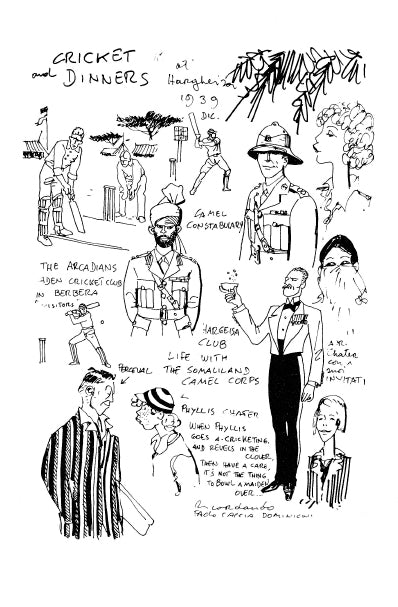 CRICKET
and DINNERS
at
Hargheisa
1939
DIC.
CAMEL
CONSTABULARY
THE ARCADIANS
ADEN CRICKET CLUB
IN BERBERA
VISITORS
HARGEISA
CLUB
LIFE WITH
THE SOMALILAND
CAMEL CORPS
PERCIVAL
PHYLLIS CHATER
WHEN PHYLLIS
GOES A-CRICKETING,
AND REVELS IN THE
CLOVER,
THEN HAVE A CARE,
IT'S NOT THE THING
TO BOWL A MAIDEN
OVER...
Chater
INVITATI
Ricordando
PAOLO CACCIA DOMINIONI